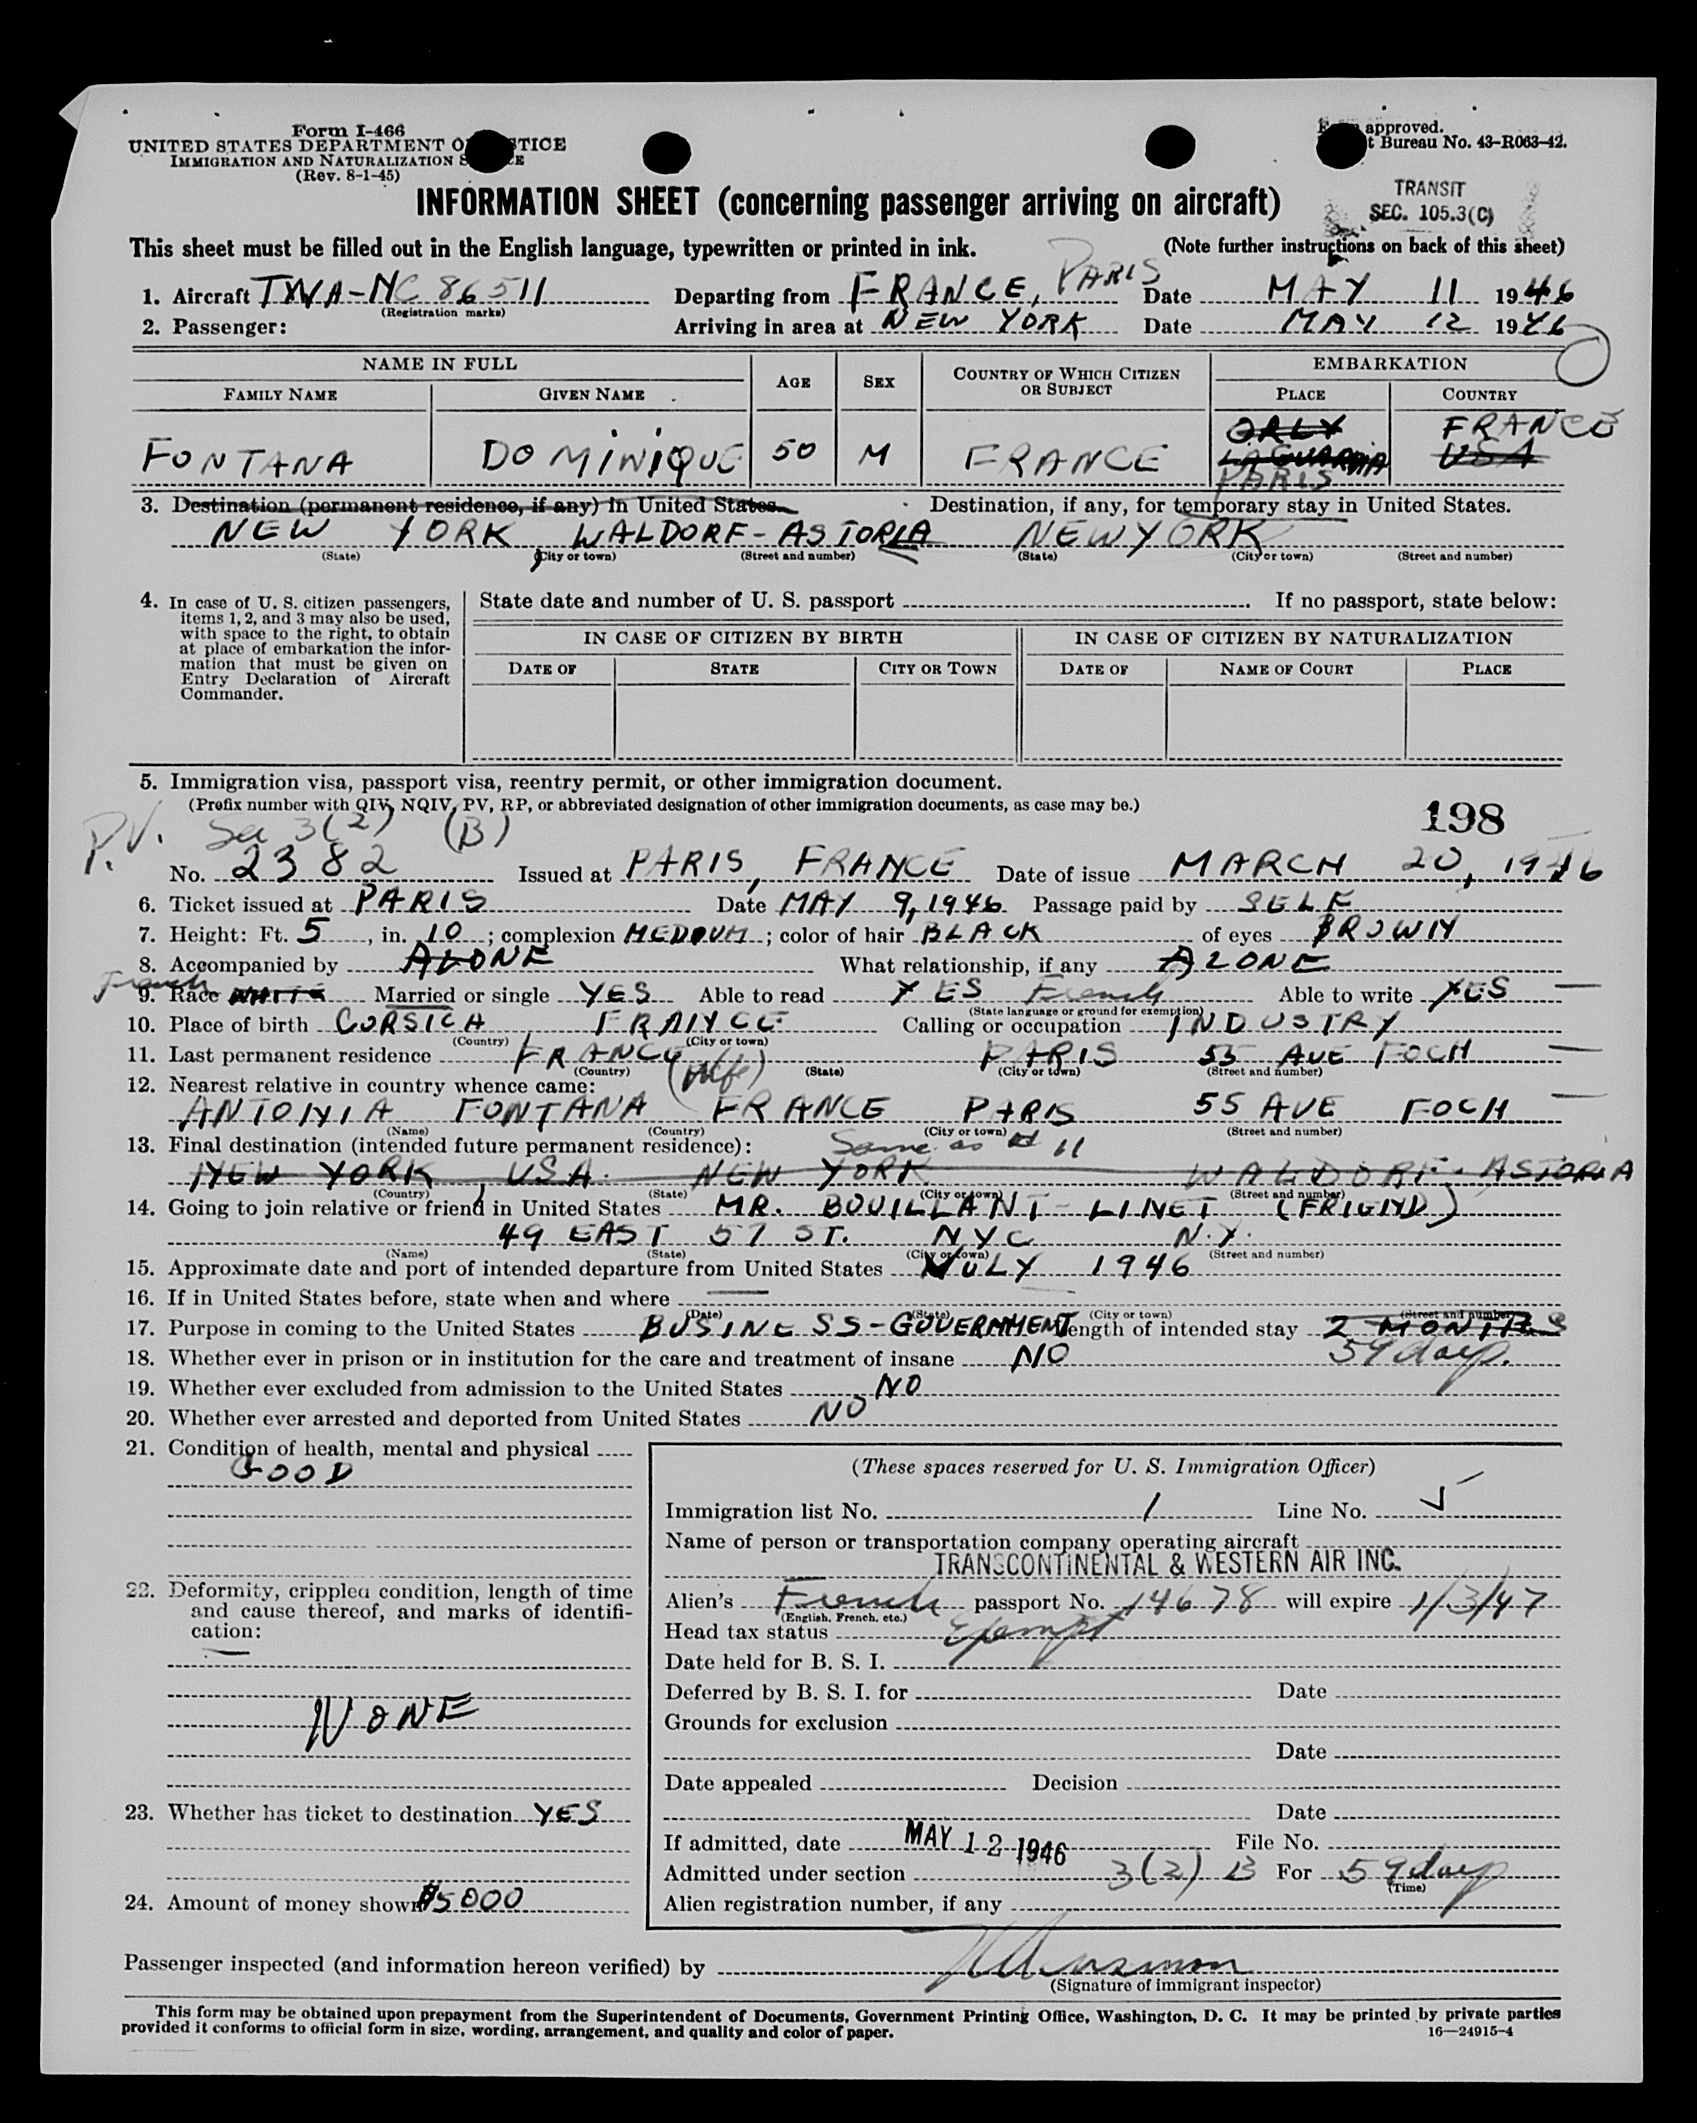 Form I-466
UNITED STATES DEPARTMENT OF JUSTICE
IMMIGRATION AND NATURALIZATION SERVICE
(Rev. 8-1-45)
Form approved.
Bureau No. 43-R063-42.
TRANSIT
SEC. 105.3(C)
INFORMATION SHEET (concerning passenger arriving on aircraft)
This sheet must be filled out in the English language, typewritten or printed in ink. (Note further instructions on back of this sheet)
1. Aircraft TWA-NC 86511 Departing from FRANCE, PARIS Date MAY 11 1946
(Registration marks)
2. Passenger: Arriving in area at NEW YORK Date MAY 12 1946
NAME IN FULL AGE SEX COUNTRY OF WHICH CITIZEN OR SUBJECT EMBARKATION
FAMILY NAME GIVEN NAME PLACE COUNTRY
ORLY FRANCE
FONTANA DOMINIQUE 50 M FRANCE LAGUARDIA USA
PARIS
3. Destination (permanent residence, if any) in United States. Destination, if any, for temporary stay in United States.
NEW YORK, WALDORF-ASTORIA NEW YORK
(State) (City or town) (Street and number) (State) (City or town) (Street and number)
4. In case of U. S. citizen passengers, items 1, 2, and 3 may also be used, with space to the right, to obtain at place of embarkation the information that must be given on Entry Declaration of Aircraft Commander.
State date and number of U. S. passport . If no passport, state below:
IN CASE OF CITIZEN BY BIRTH IN CASE OF CITIZEN BY NATURALIZATION
DATE OF STATE CITY OR TOWN DATE OF NAME OF COURT PLACE
5. Immigration visa, passport visa, reentry permit, or other immigration document.
(Prefix number with QIV, NQIV, PV, RP, or abbreviated designation of other immigration documents, as case may be.)
198
P.V. Sec 3(2) (B)
No. 2382 Issued at PARIS, FRANCE Date of issue MARCH 20, 1946
6. Ticket issued at PARIS Date MAY 9, 1946 Passage paid by SELF
7. Height: Ft. 5, in. 10; complexion MEDIUM; color of hair BLACK of eyes BROWN
8. Accompanied by ALONE What relationship, if any ALONE
French
9. Race WHITE Married or single YES Able to read YES French Able to write YES
(State language or ground for exemption)
10. Place of birth CORSICA, FRANCE Calling or occupation INDUSTRY
(Country) (City or town)
11. Last permanent residence FRANCE PARIS 55 AVE FOCH
(Country) (State) (City or town) (Street and number)
12. Nearest relative in country whence came: (Wife)
ANTONIA FONTANA FRANCE PARIS 55 AVE FOCH
(Name) (Country) (City or town) (Street and number)
13. Final destination (intended future permanent residence): Same as # 11
NEW YORK, USA. NEW YORK WALDORF-ASTORIA
(Country) (State) (City or town) (Street and number)
14. Going to join relative or friend in United States MR. BOUILLANT-LINET (FRIEND)
49 EAST 57 ST. NYC N.Y.
(Name) (State) (City or town) (Street and number)
15. Approximate date and port of intended departure from United States JULY 1946
16. If in United States before, state when and where
(Date) (State) (City or town) (Street and number)
17. Purpose in coming to the United States BUSINESS-GOVERNMENT Length of intended stay 2 MONTHS
59 days.
18. Whether ever in prison or in institution for the care and treatment of insane NO
19. Whether ever excluded from admission to the United States NO
20. Whether ever arrested and deported from United States NO
21. Condition of health, mental and physical
GOOD
22. Deformity, crippled condition, length of time and cause thereof, and marks of identification:
NONE
23. Whether has ticket to destination YES
24. Amount of money shown $5000
(These spaces reserved for U. S. Immigration Officer)
Immigration list No. 1 Line No. 5
Name of person or transportation company operating aircraft
TRANSCONTINENTAL & WESTERN AIR INC.
Alien's French passport No. 14678 will expire 1/3/47
(English, French, etc.)
Head tax status Exempt
Date held for B. S. I.
Deferred by B. S. I. for Date
Grounds for exclusion
Date
Date appealed Decision
Date
If admitted, date MAY 12 1946 File No.
Admitted under section 3(2) B For 59 days
(Time)
Alien registration number, if any
Passenger inspected (and information hereon verified) by
(Signature of immigrant inspector)
This form may be obtained upon prepayment from the Superintendent of Documents, Government Printing Office, Washington, D. C. It may be printed by private parties
provided it conforms to official form in size, wording, arrangement, and quality and color of paper. 16—24915-4